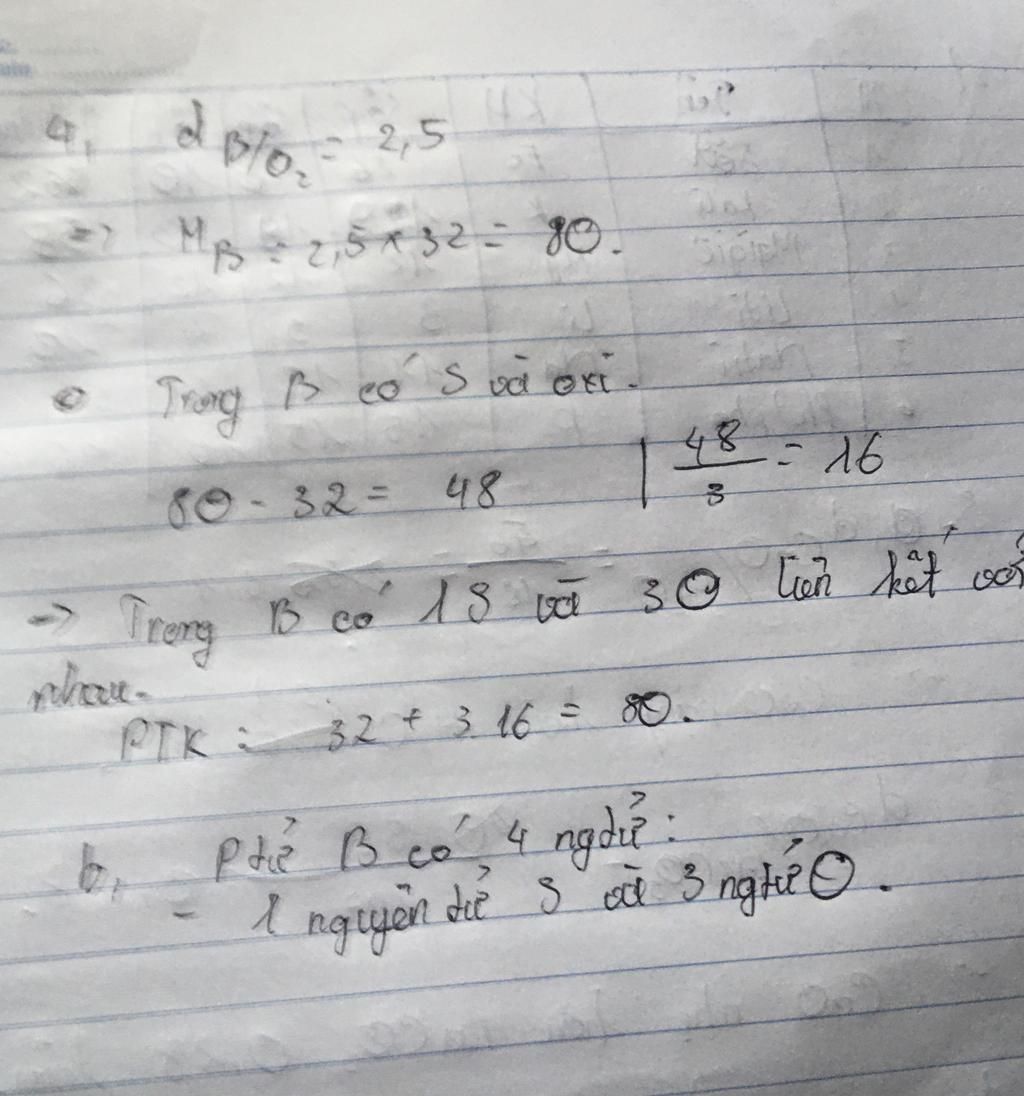 4, d B/O₂ = 2,5
=> M_B = 2,5 x 32 = 80.
Trong B có S và oxi.
80 - 32 = 48 | 48/3 = 16
-> Trong B có 1 S và 3 O liên kết với
nhau.
PTK : 32 + 3.16 = 80.
b, Ptử B có 4 ngtử :
- 1 nguyên tử S và 3 ngtử O.